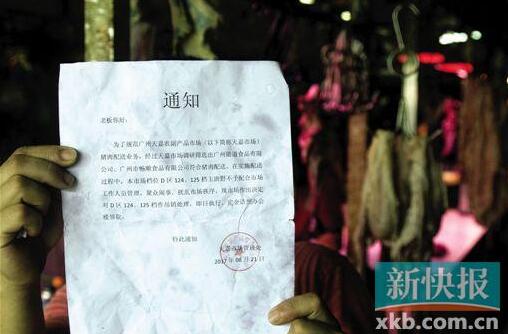 通知
老板你好:
为了规范广州天嘉农副产品市场(以下简称天嘉市场)
猪肉配送业务,经过天嘉市场调研筛选出广州 食品有限
公司、广州市畅顺食品有限公司符合猪肉配送。在实施配送
过程中,本市场档位D区124、125档主唐野不予配合市场
工作人员管理,聚众闹事,扰乱市场秩序,现市场作出决定
对D区124、125档作吊销处理,即日执行,完全请您办公
楼领取。
特此通知
天嘉市场管理处
2017年08月21日
新快报
xkb.com.cn